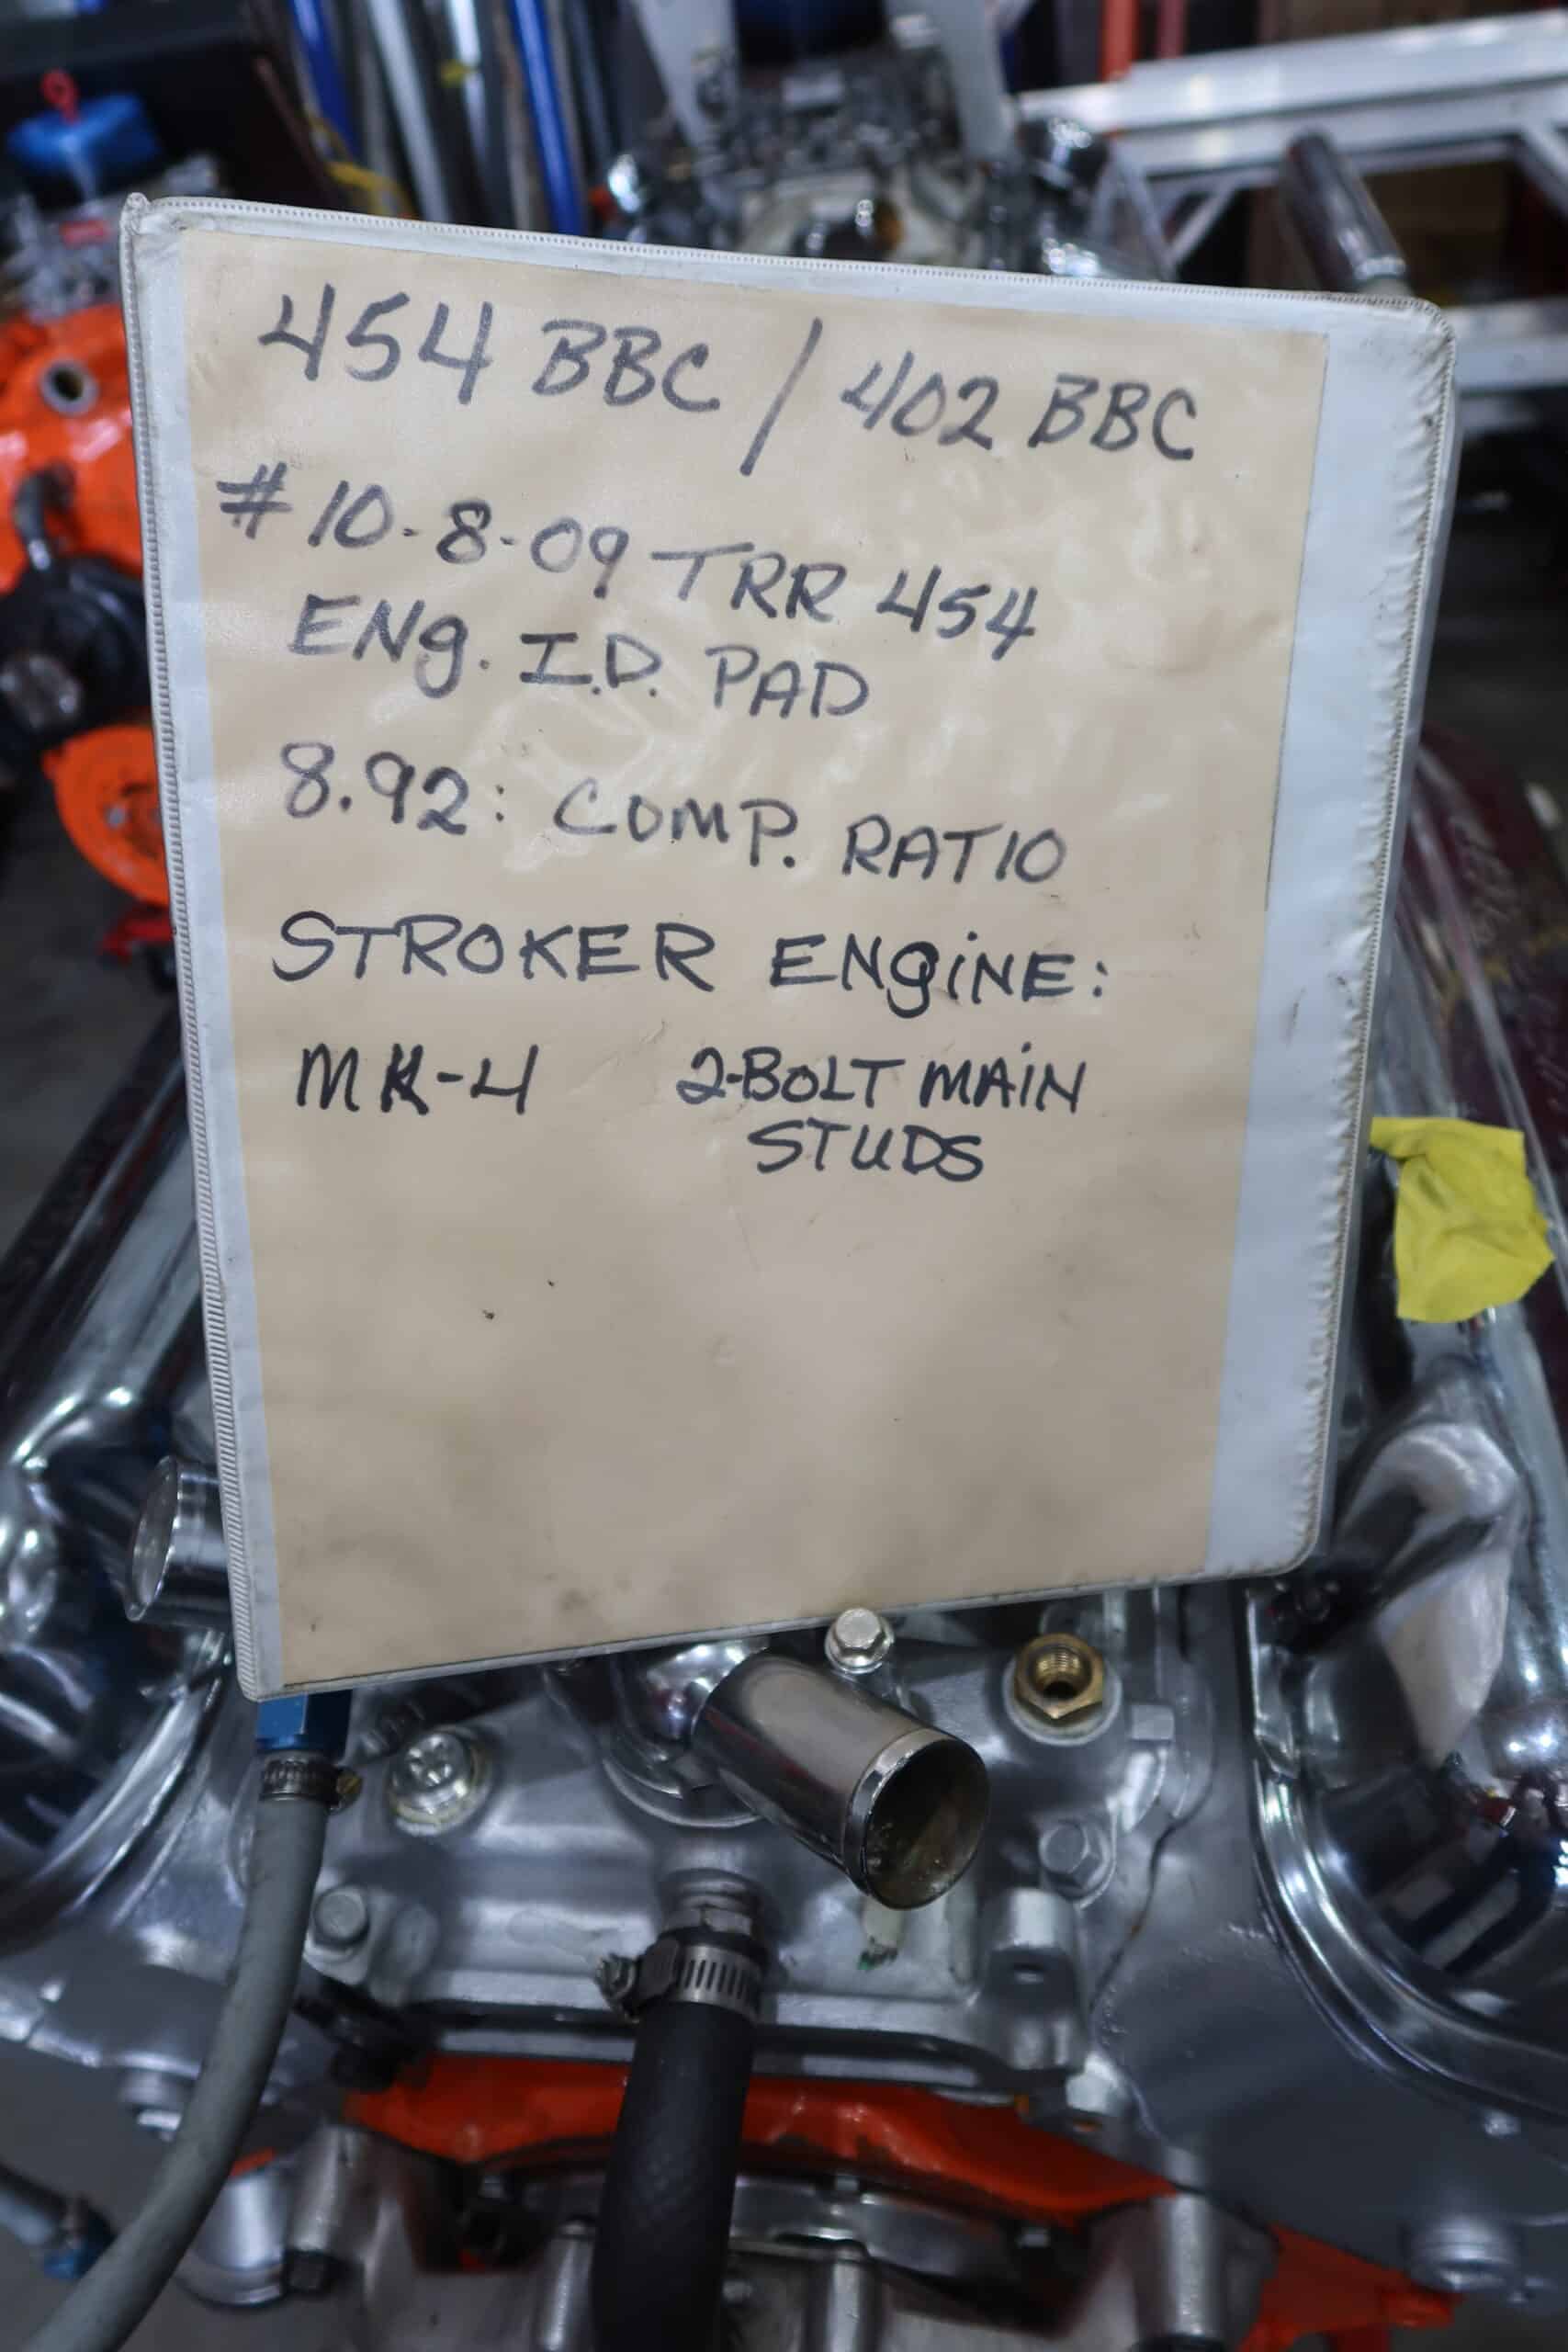 454 BBC / 402 BBC
# 10-8-09 TRR 454
ENg. I.D. PAD
8.92: COMP. RATIO
STROKER ENgiNE:
MK-4 2-BOLT MAiN
STUDS